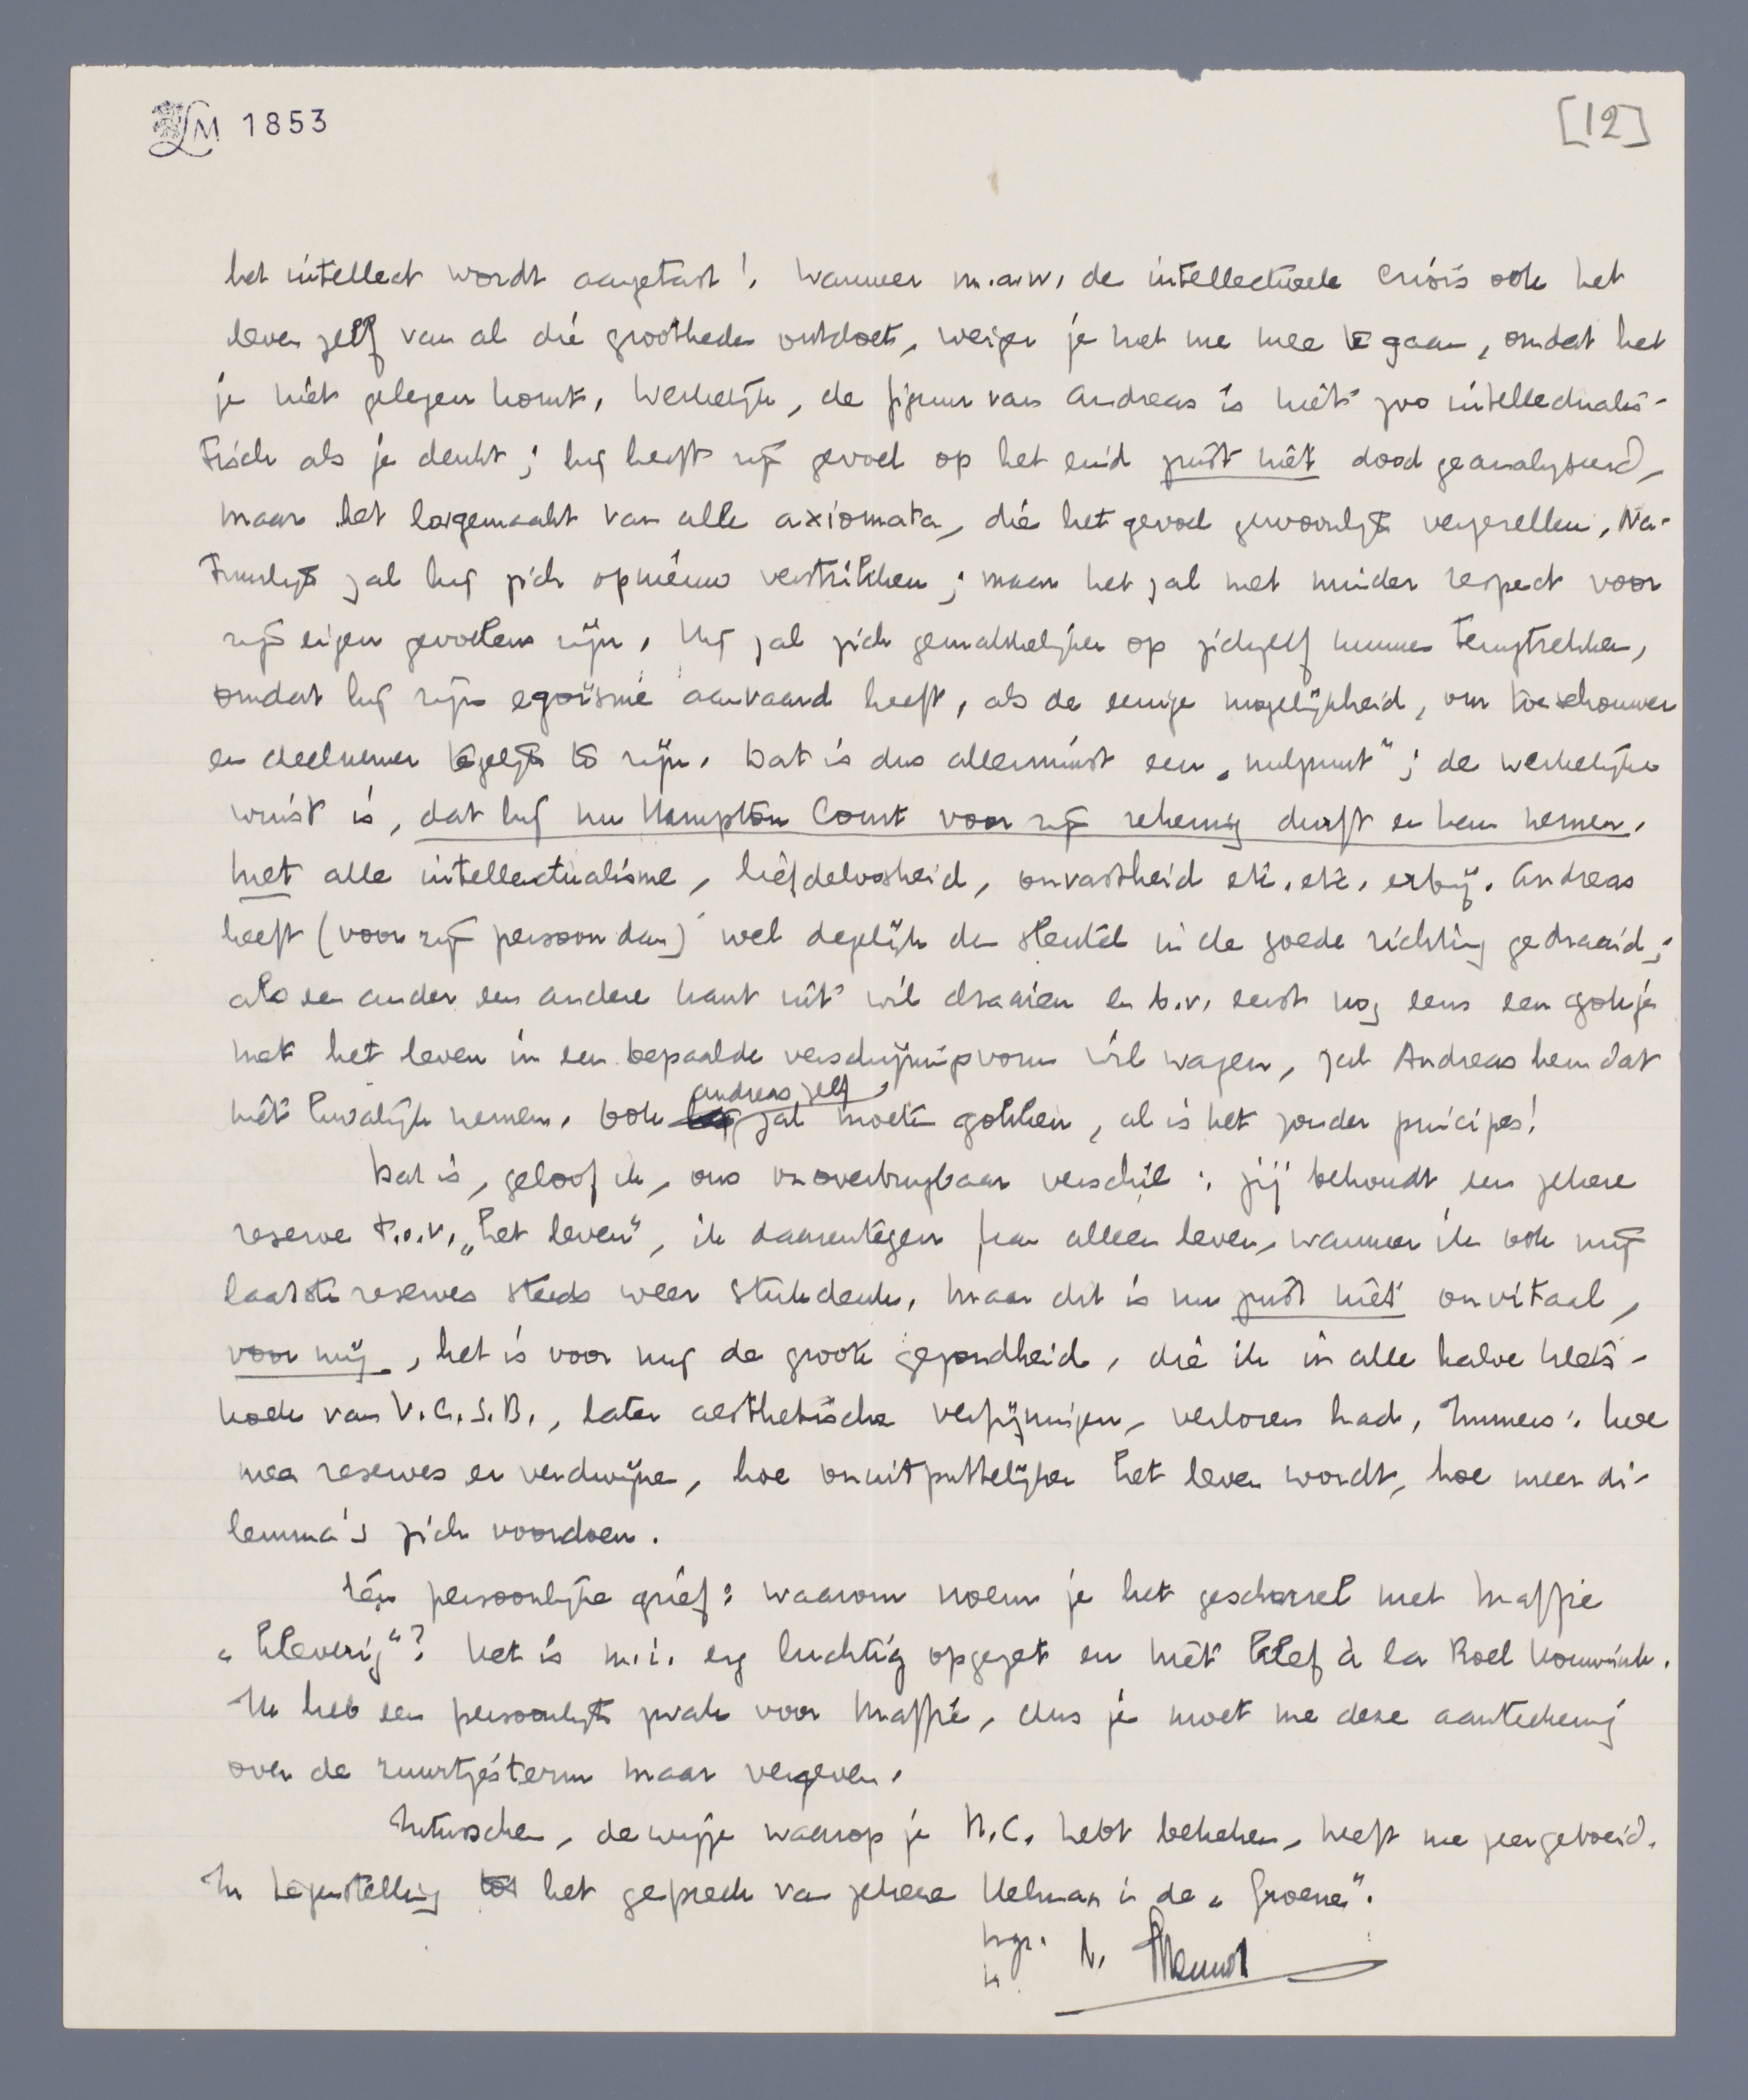 LM 1853
[12]
het intellect wordt aangetast! Wanneer m.a.w. de intellectueele crisis ook het
leven zelf van al die grootheden ontdoet, weiger je met me mee te gaan, omdat het
je niet gelegen komt. Werkelijk, de figuur van Andreas is niet zoo intellectualis-
tisch als je denkt; hij heeft zijn gevoel op het eind juist niet dood geanalyseerd,
maar het losgemaakt van alle axiomata, die het gevoel gewoonlijk vergezellen. Na-
tuurlijk zal hij zich opnieuw verstrikken; maar het zal met minder respect voor
zijn eigen gevoelens zijn. Hij zal zich gemakkelijker op zichzelf kunnen terugtrekken,
omdat hij zijn egoïsme aanvaard heeft, als de eenige mogelijkheid, om toeschouwer
en deelnemer tegelijk te zijn. Dat is dus allerminst een „nulpunt"; de werkelijke
winst is, dat hij nu Hampton Court voor zijn rekening durft en kan nemen.
met alle intellectualisme, liefdeloosheid, onvastheid etc. etc. erbij. Andreas
heeft (voor zijn persoon dan) wel degelijk den sleutel in de goede richting gedraaid;
als een ander een andere kant uit wil draaien en b.v. eerst nog eens een gokje
met het leven in een bepaalde verschijningsvorm wil wagen, zal Andreas hem dat
niet kwalijk nemen. Ook Andreas zelf zal moeten gokken, al is het zonder principes!
Dat is, geloof ik, ons onoverbrugbaar verschil: jij behoudt een zekere
reserve t.o.v. „het leven", ik daarentegen kan alleen leven, wanneer ik ook mijn
laatste reserves steeds weer stukdenk. Maar dit is nu juist niet onvitaal,
voor mij, het is voor mij de groote gezondheid, die ik in alle halve klets-
koek van V.C.S.B., later aesthetische verfijningen, verloren had. Immers: hoe
meer reserves er verdwijnen, hoe onuitputtelijker het leven wordt, hoe meer di-
lemma's zich voordoen.
Eén persoonlijke grief: waarom noem je het gescharrel met Maffie
„kleverig"? Het is m.i. erg luchtig opgezet en niet klef à la Roel Houwink.
Ik heb een persoonlijk zwak voor Maffie, dus je moet me deze aanteekening
over de zuurtjesterm maar vergeven.
Intusschen, de wijze waarop je H.C. hebt bekeken, heeft me zeer geboeid.
In tegenstelling tot het gesprek van zekere Helman in de „Groene".
h.gr.
t.t. Menno